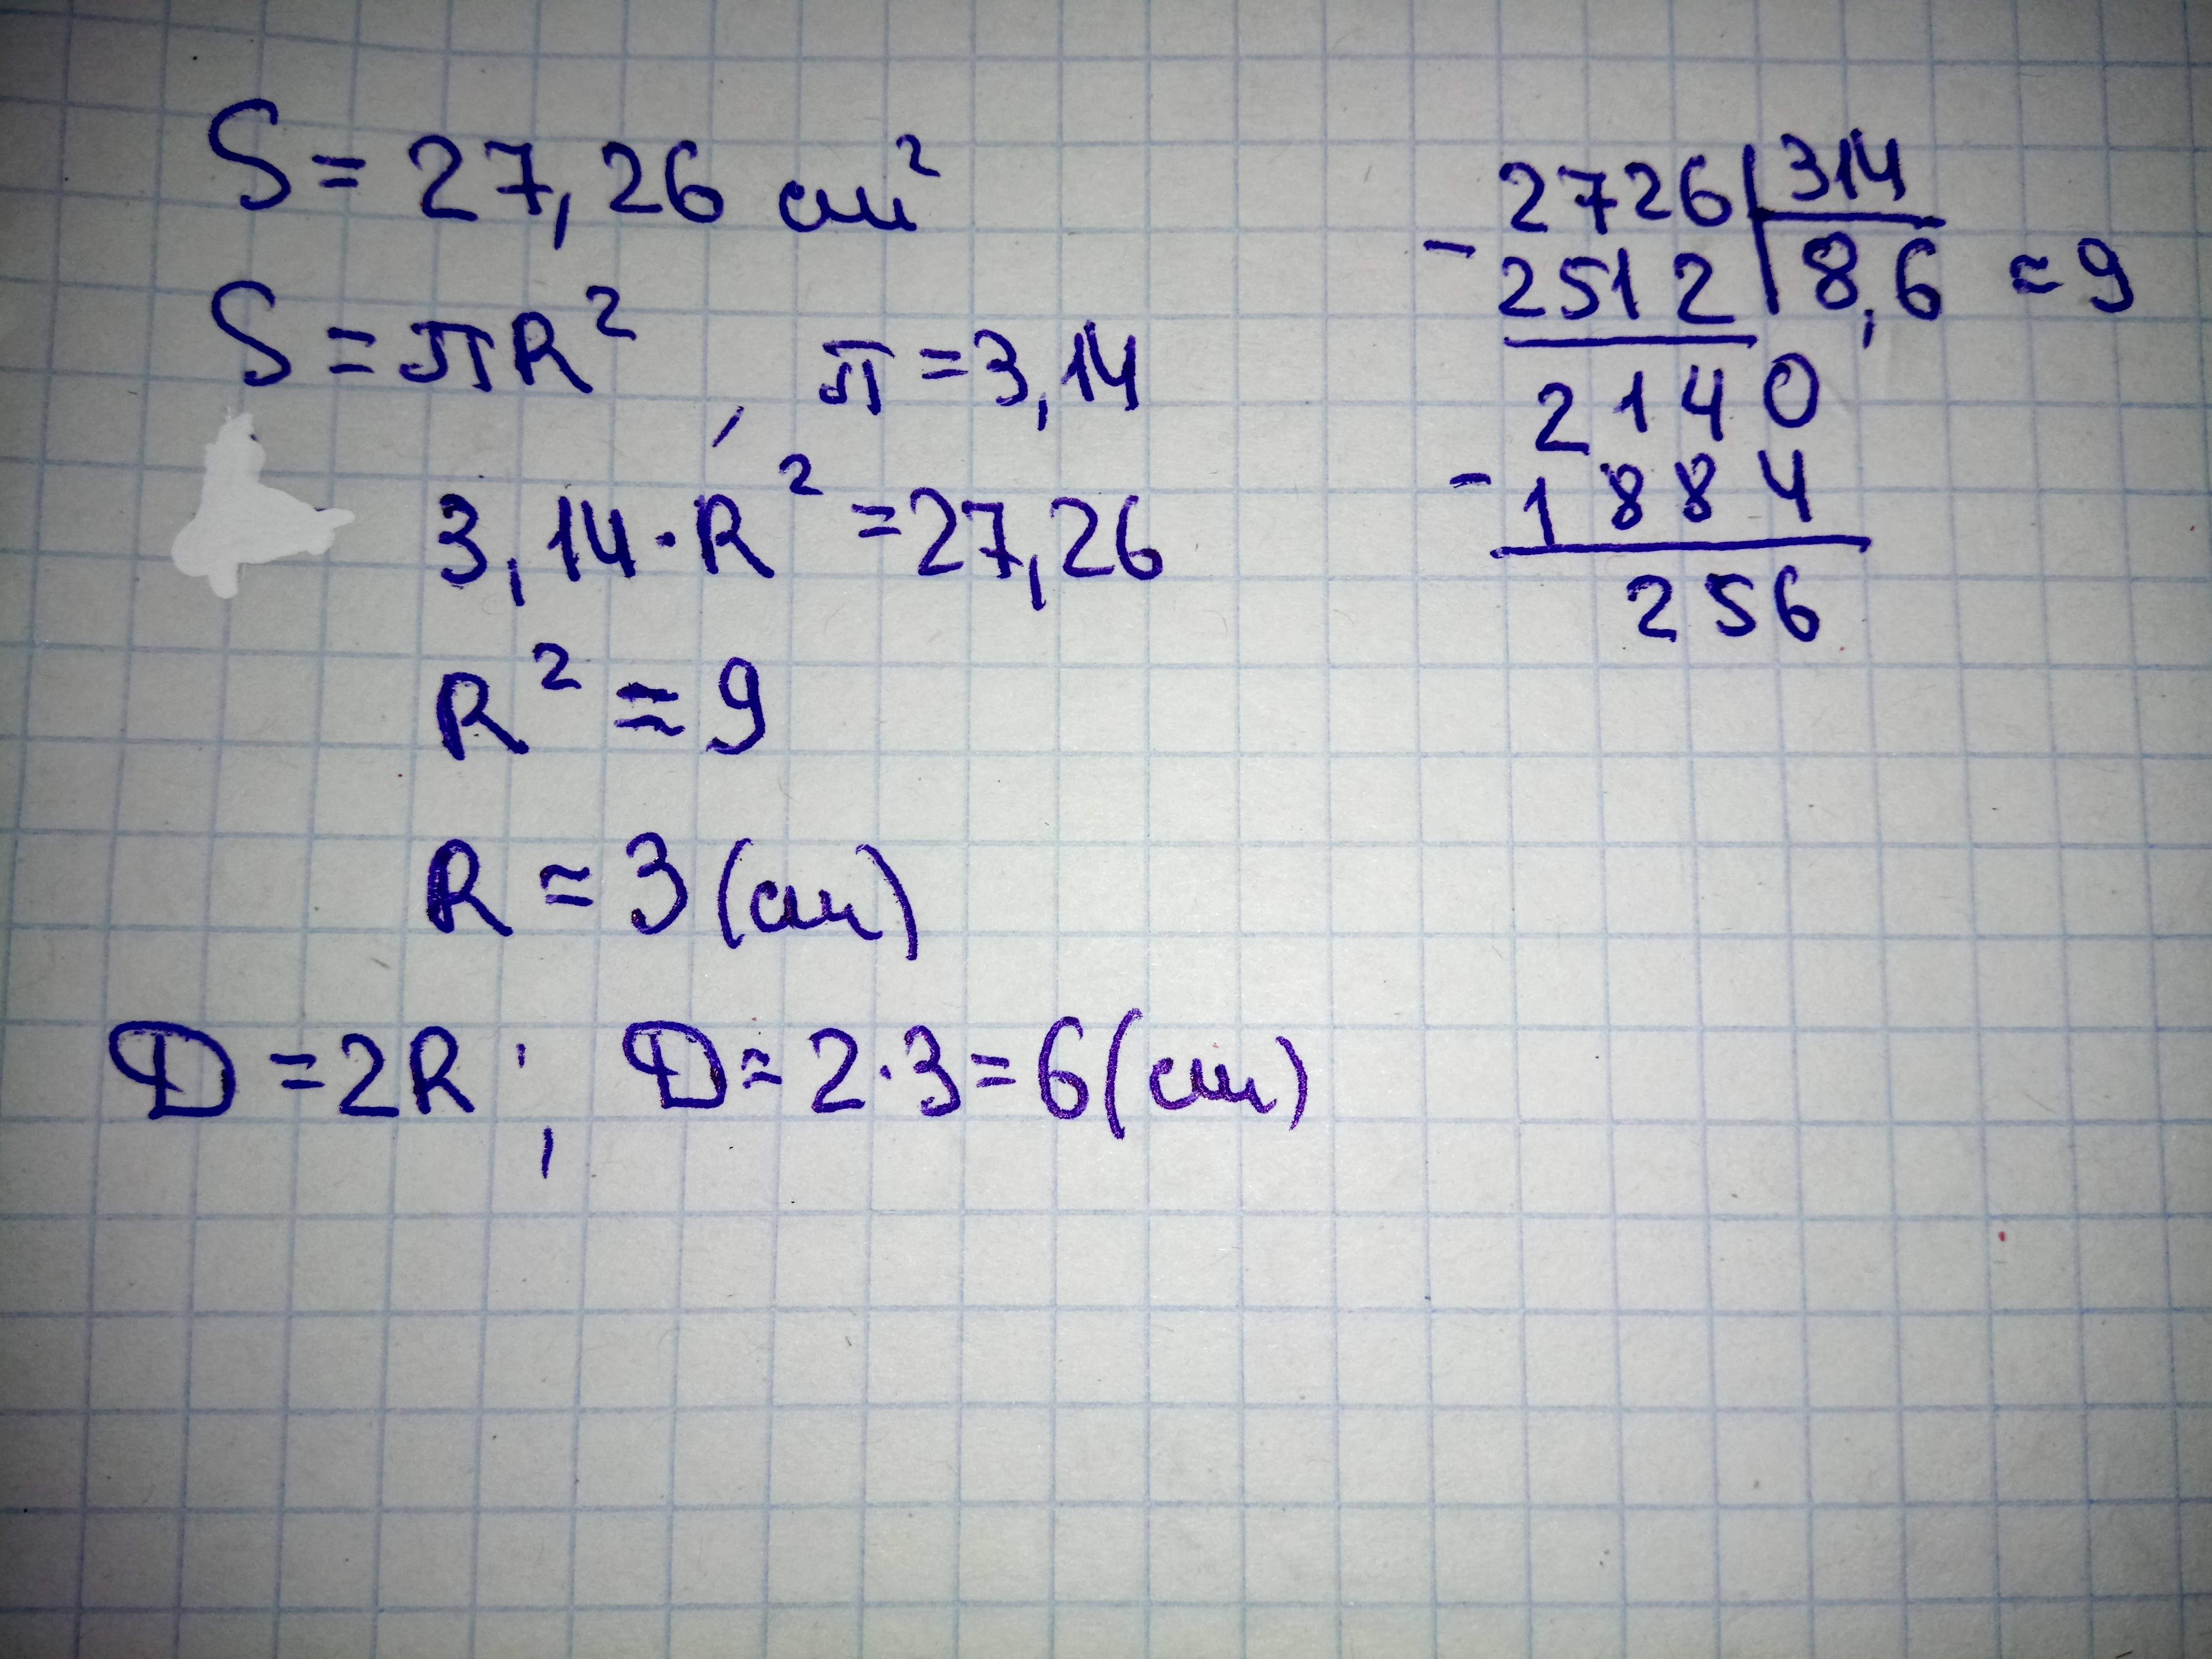 S = 27,26 см²
S = πR² , π = 3,14
3,14 · R² = 27,26
R² ≈ 9
R ≈ 3 (см)
D = 2R ; D ≈ 2 · 3 = 6 (см)
2726 | 314
- 2512 | 8,6 ≈ 9
2140
- 1884
256